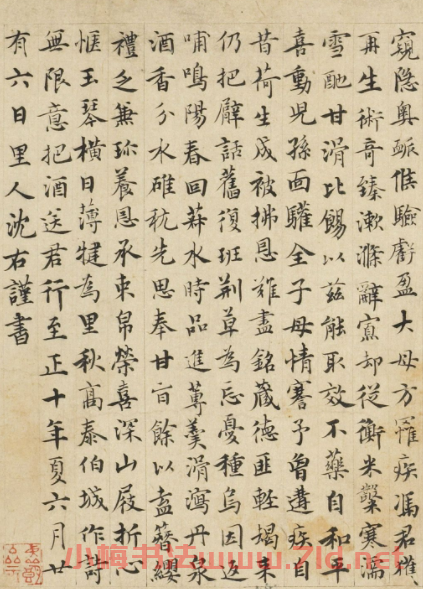 窺隱奧脈候驗虧盈大母方罹疾馮君獲
再生術奇臻漱滌辭寡却從衡米檗寒濡
雪酏甘滑比餳以茲能取效不藥自和平
喜動兒孫面驩全子母情騫予曾遘疾自
昔荷生成被拂恩難盡銘藏德匪輕曷來
仍把臂話舊復班荆草為忘憂種烏因返
哺鳴陽春回莽水時品進蓴羹滑瀉丹泉
酒香分水碓秔先思奉甘旨餘以盍簪纓
禮乏兼珍養恩承束帛榮喜深山屐折心
愜玉琴橫日薄犍為里秋高泰伯城作詩
無限意把酒送君行至正十年夏六月廿
有六日里人沈右謹書
小梅书法www.71d.net